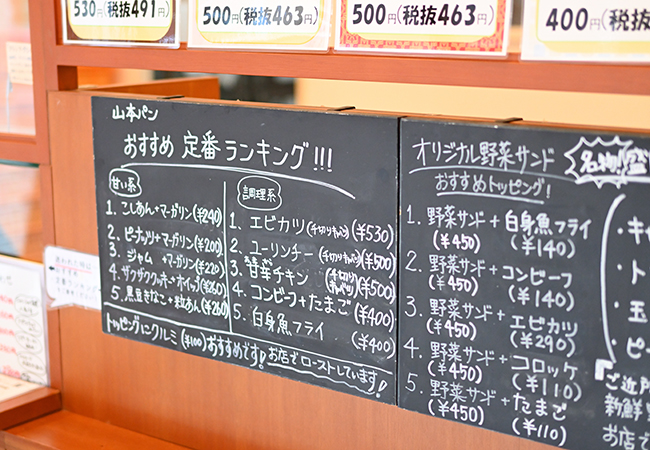 530円(税抜491円)
500円(税抜463円)
500円(税抜463円)
400円(税抜
山本パン
おすすめ 定番ランキング!!!
甘い系
1. こしあん+マーガリン(¥240)
2. ピーナッツ+マーガリン(¥200)
3. ジャム +マーガリン(¥220)
4. ザクザククッキー+ホイップ(¥260)
5. 黒豆きなこ+粒あん(¥260)
調理系
1. エビカツ(千切りキャベツ)(¥530)
2. ユーリンチー(千切りキャベツ)(¥500)
3. 甘辛チキン(千切りキャベツ)(¥500)
4. コンビーフ+たまご(¥400)
5. 白身魚フライ (¥400)
トッピングにクルミ(¥100)おすすめです! お店でローストしています!
オリジナル野菜サンド
おすすめトッピング!
1. 野菜サンド+白身魚フライ
(¥450) (¥140)
2. 野菜サンド+コンビーフ
(¥450) (¥140)
3. 野菜サンド+エビカツ
(¥450) (¥290)
4. 野菜サンド+コロッケ
(¥450) (¥110)
5. 野菜サンド+たまご
(¥450) (¥110)
名物!盛
・キャ
・ト
・玉
・ピー
ご近所
新鮮野
お店で